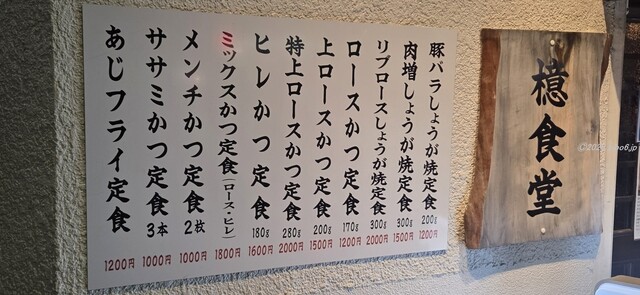 檍食堂
豚バラしょうが焼定食 200g 1200円
肉増しょうが焼定食 300g 1500円
リブロースしょうが焼定食 300g 2000円
ロースかつ定食 170g 1200円
上ロースかつ定食 200g 1500円
特上ロースかつ定食 280g 2000円
ヒレかつ定食 180g 1600円
ミックスかつ定食(ロース・ヒレ) 1800円
メンチかつ定食 2枚 1000円
ササミかつ定食 3本 1000円
あじフライ定食 1200円